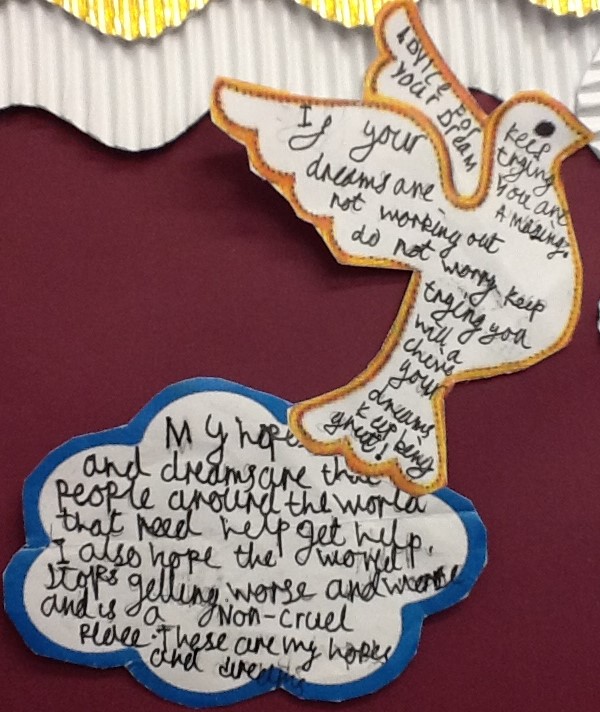 ADVICE FOR
YOUR DREAM
If your
dreams are
not working out
do not worry keep
trying you
will a
cheive
your
dreams
keep being
great!
keep
trying
you are
Amazing!
My hopes
and dreams are that
people around the world
that need help get help.
I also hope the world
stops getting worse and worse
and is a Non-cruel
place. These are my hopes
and dreams